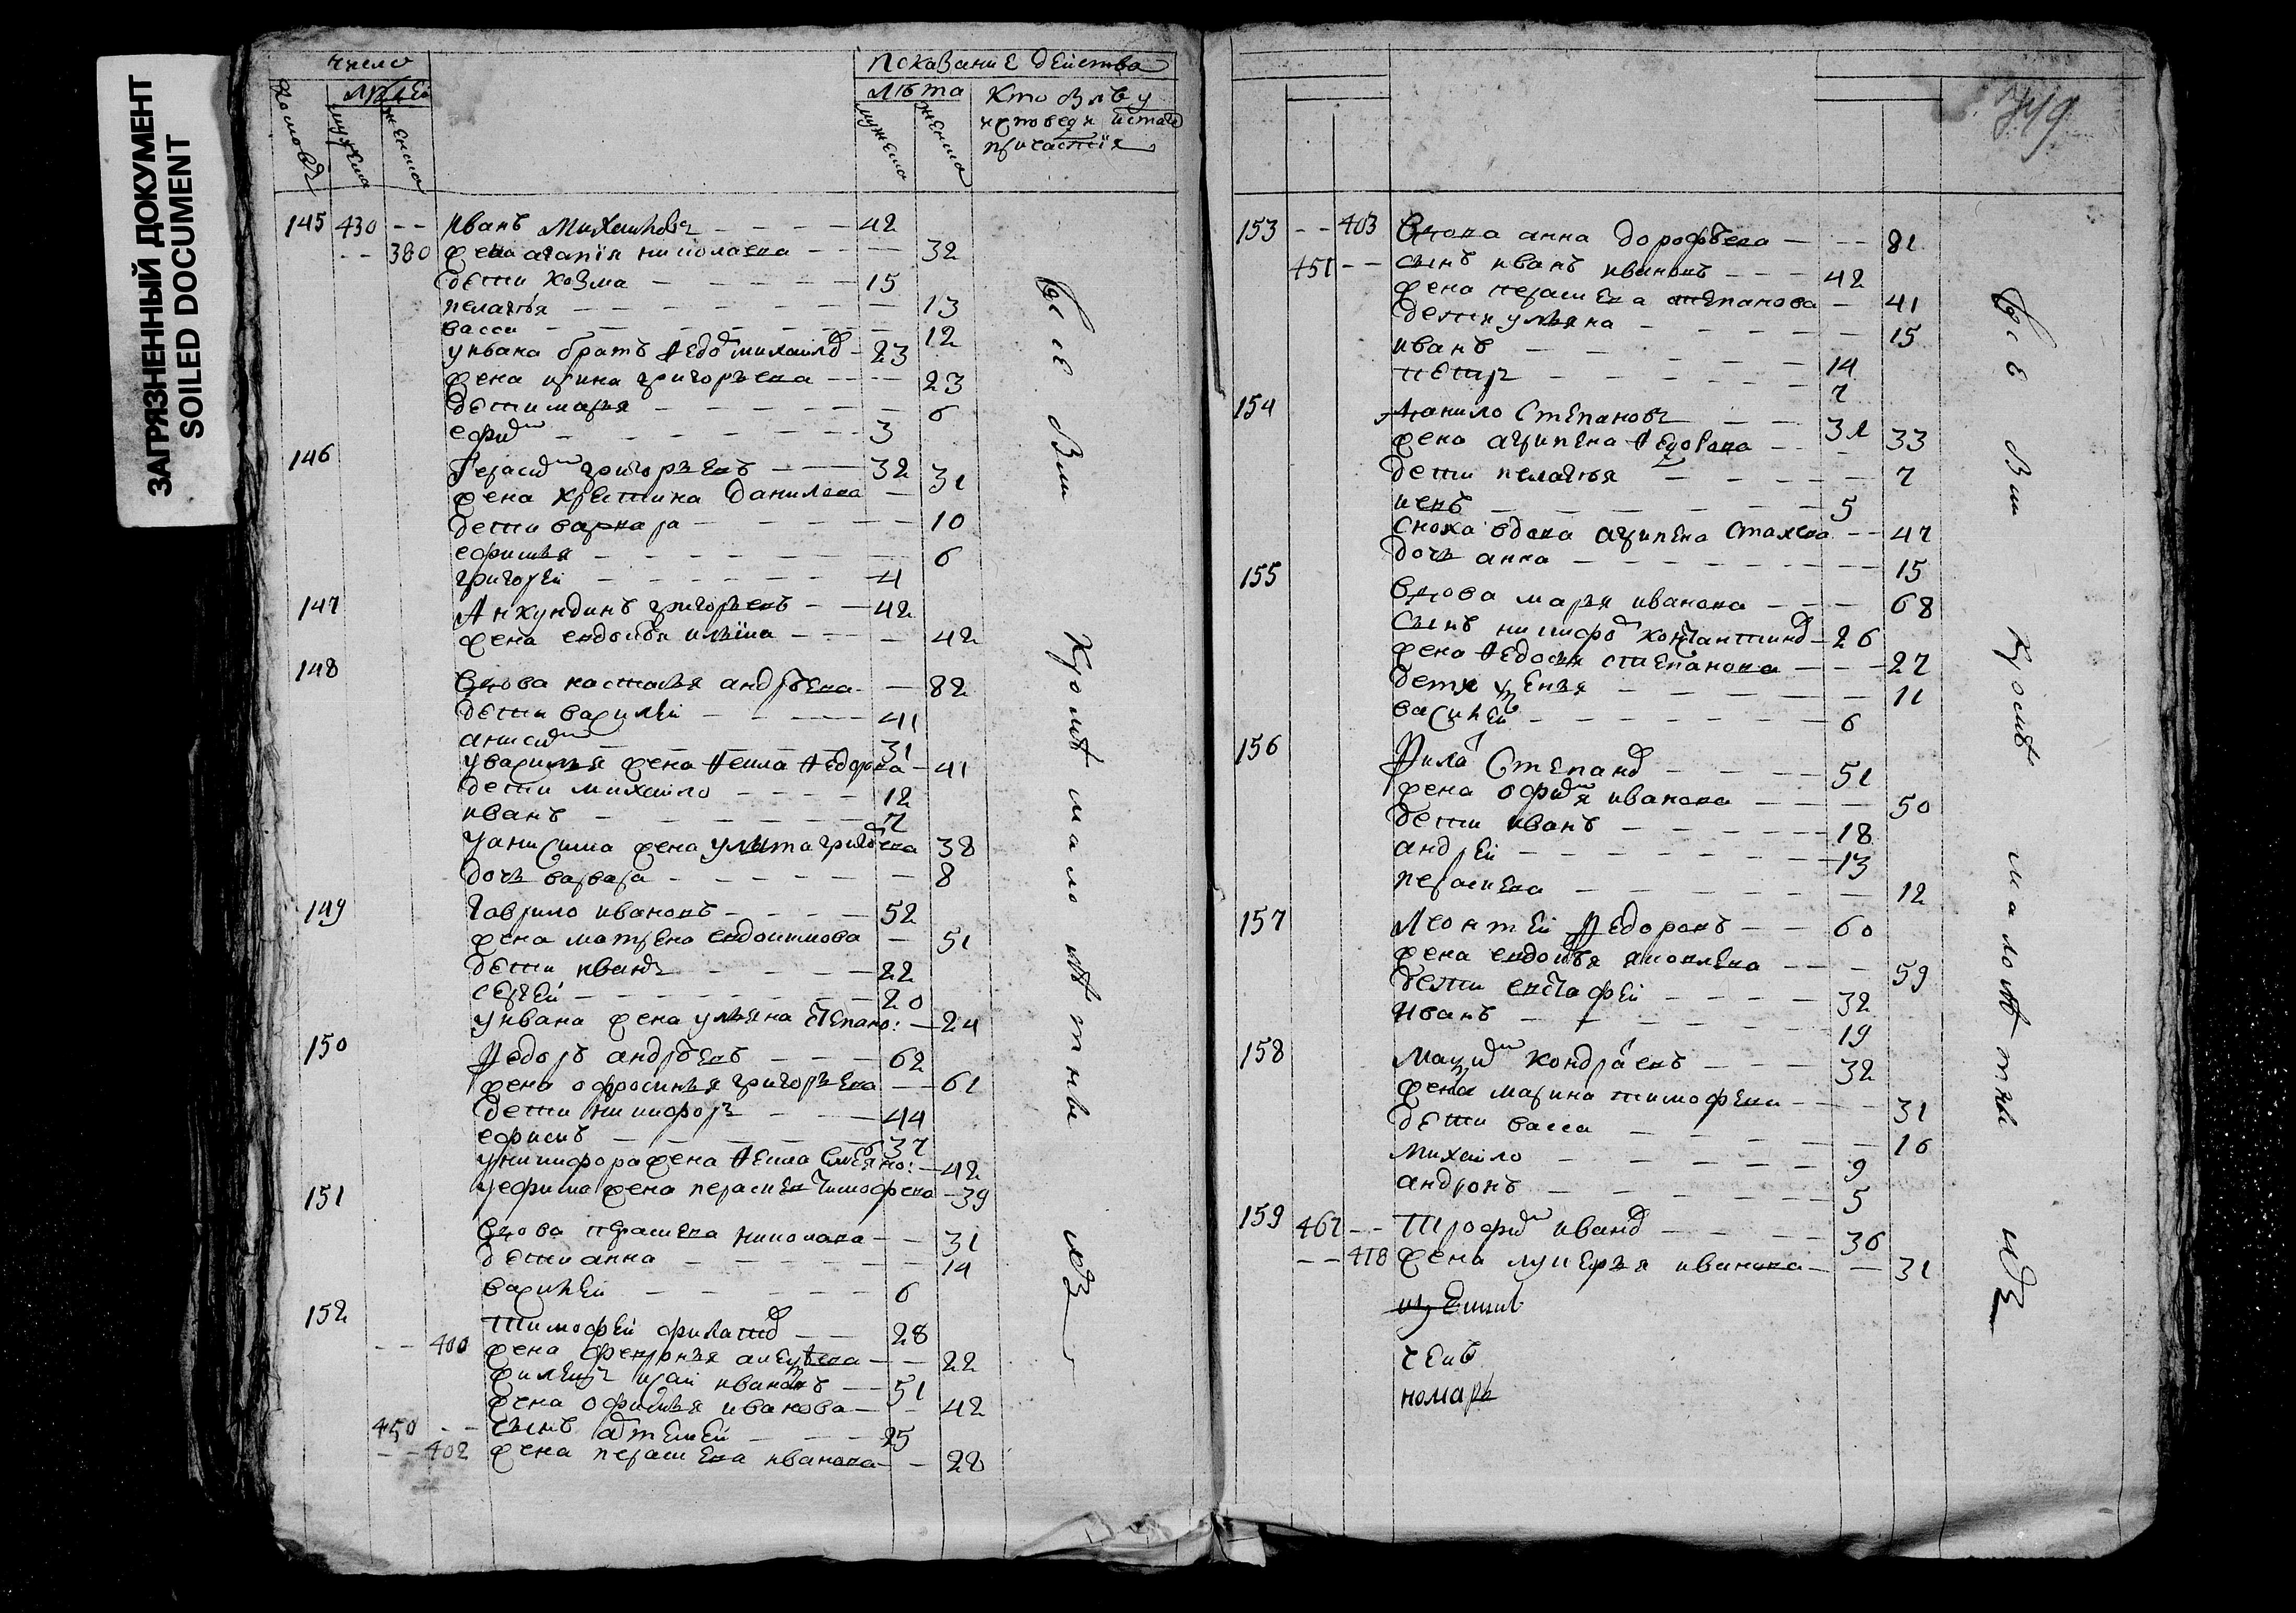 ЗАГРЯЗНЕННЫЙ ДОКУМЕНТ
SOILED DOCUMENT
число
людей
домовъ
мужеска
женска
показание действа
лѣта
мужеска
женска
Кто былъ у
исповеди и ста
причастїя
145 430 -- иванъ Михаиловъ 42
-- 380 жена агапїя николаева 32
дети козма 15
пелагѣя 13
васса 12
у ивана братъ Ѳедоръ михаилов 23
жена ирина григорьева 23
дети марья 6
ефим 3
146 Герасим григорьевъ 32
жена христина данилова 31
дети варвара 10
ефимья 6
григореи 4
147 Анкундинъ григорьевъ 42
жена евдокѣя ильїна 42
148 Вдова настасья андрѣева 82
дети василеи 41
анисим 31
у василья жена Ѳекла Ѳедорова 41
дети михаило 12
иванъ 7
у анисима жена улита григорева 38
дочь варвара 8
149 Гаврило ивановъ 52
жена матрена евдокимова 51
дети иванъ 22
сергеи 20
у ивана жена ульяна степано: 24
150 Ѳедоръ андрѣевъ 62
жена офросинья григорьева 61
дети никифоръ 44
ефимъ 37
у никифора жена Ѳекла 42
у ефима жена парасковя тимофеева 39
151 Вдова параскева николаева 31
дети анна 14
василеи 6
152 тимофеи филатов 28
-- 400 жена феврония 22
ивановъ 51
жена офимья иванова 42
450 -- сынъ артемеи 25
-- 402 жена параскева иванова 28
Все Вш Кромѣ малолѣтны
749
153 -- 403 Вдова анна дорофѣева 81
451 -- сынъ иванъ ивановъ 42
жена параскева степанова 41
дети ульяна 15
иванъ 14
петръ 7
154 Данило Степановъ 32
жена агрипена Ѳедорова 33
дети пелагѣя 7
5
сноха вдова агрипена 47
дочь анна 15
155 Вдова марья иванова 68
сынъ никифор константинов 26
жена Ѳедосья степанова 27
дети 11
василеи 6
156 Филат Степанов 51
жена офимя иванова 50
дети иванъ 18
андреи 13
параскева 12
157 Леонтеи Ѳедоровъ 60
жена евдокѣя яковлева 59
дети евстафеи 32
иванъ 19
158 Максим кондратевъ 32
жена марина тимофеева 31
дети васса 16
михаило 9
андронъ 5
159 467 -- трофим иванов 36
-- 418 жена лукерья иванова 31
Все Вш Кромѣ малолѣтны
номарь